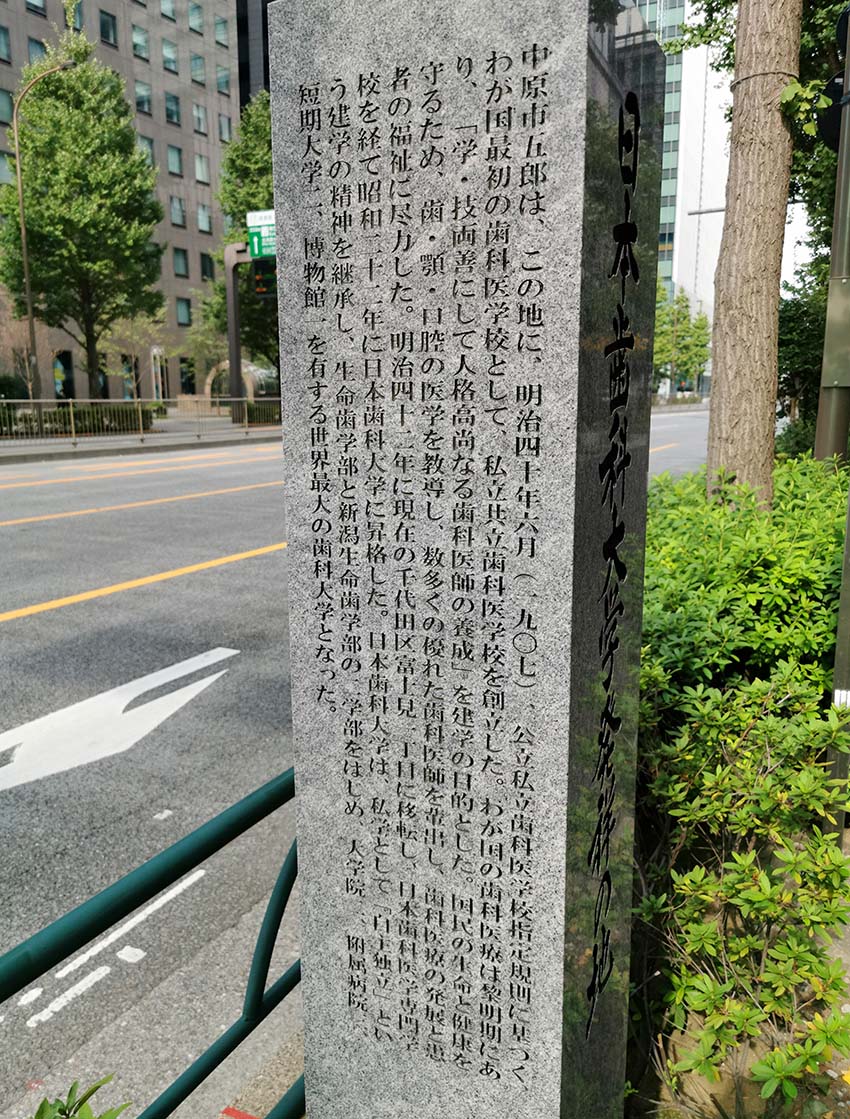 日本歯科大学発祥の地
中原市五郎は、この地に、明治四十年六月（一九〇七）、公立私立歯科医学校指定規則に基づく、
わが国最初の歯科医学校として、私立共立歯科医学校を創立した。わが国の歯科医療は黎明期にあ
り、「学・技両善にして人格高尚なる歯科医師の養成」を建学の目的とした。国民の生命と健康を
守るため、歯・顎・口腔の医学を教導し、数多くの優れた歯科医師を輩出し、歯科医療の発展と患
者の福祉に尽力した。明治四十二年に現在の千代田区富士見一丁目に移転し、日本歯科医学専門学
校を経て昭和二十二年に日本歯科大学に昇格した。日本歯科大学は、私学として「自主独立」とい
う建学の精神を継承し、生命歯学部と新潟生命歯学部の二学部をはじめ、大学院二、附属病院三、
短期大学二、博物館一を有する世界最大の歯科大学となった。